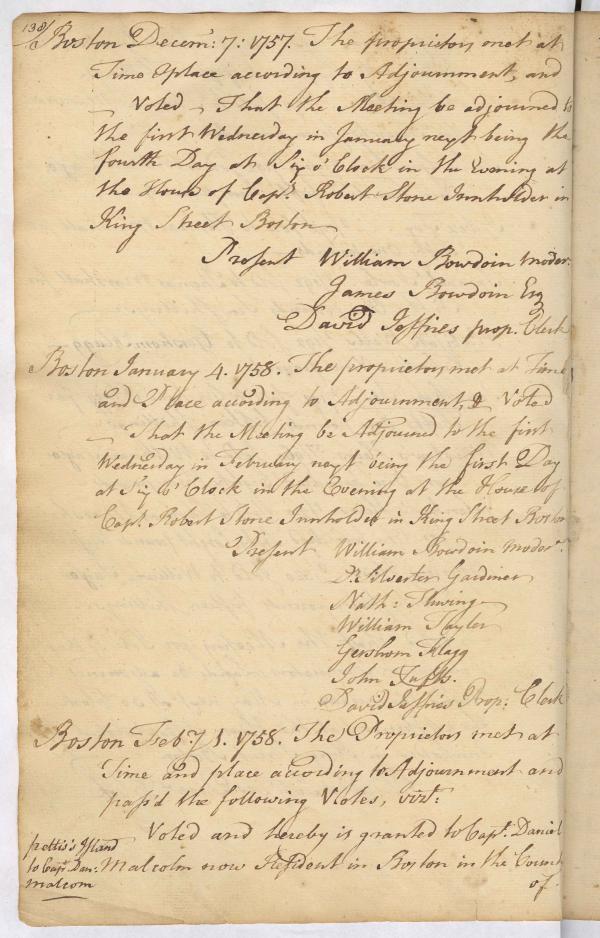 138/
Boston Decem: 7: 1757. The proprietors met at
Time & place according to Adjournment, and
Voted, That the Meeting be adjourned to
the first Wednesday in January next being the
fourth Day at Six o'Clock in the Evening at
the House of Capt. Robert Stone Innholder in
King Street Boston
Present William Bowdoin moder:
James Bowdoin Esq
David Jeffries prop. Clerk
Boston January 4. 1758. The proprietors met at Time
and Place according to Adjournment, & Voted
That the Meeting be Adjourned to the first
Wednesday in February next being the first Day
at Six o'Clock in the Evening at the House of
Capt. Robert Stone Innholder in King Street Boston
Present William Bowdoin moder.
Dr. Silvester Gardiner
Nath: Thwing
William Tayler
Gershom Flagg
John
David Jeffries Prop: Clerk
Boston Feby 1. 1758. The Proprietors met at
Time and place according to Adjournment and
pass'd the following Votes, vizt:
Voted and hereby is granted to Capt. Daniel
pettis's Island
to Capt. Dan:
malcom
Malcolm now Resident in Boston in the County
of